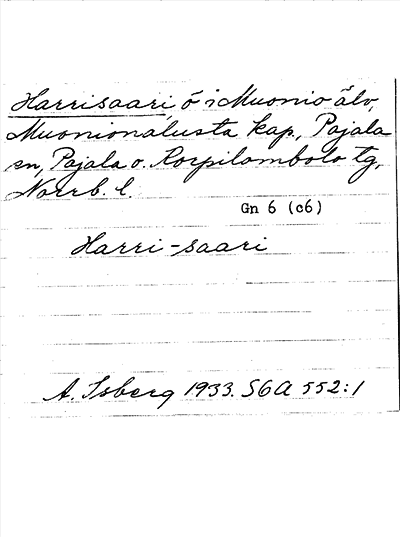 Harrisaari ö i Muonio älv,
Muonionalusta kap., Pajala
sn, Pajala o. Korpilombolo tg,
Norrb. l.
Gn 6 (c6)
Harri-saari
A. Isberg 1933. SGA 552:1